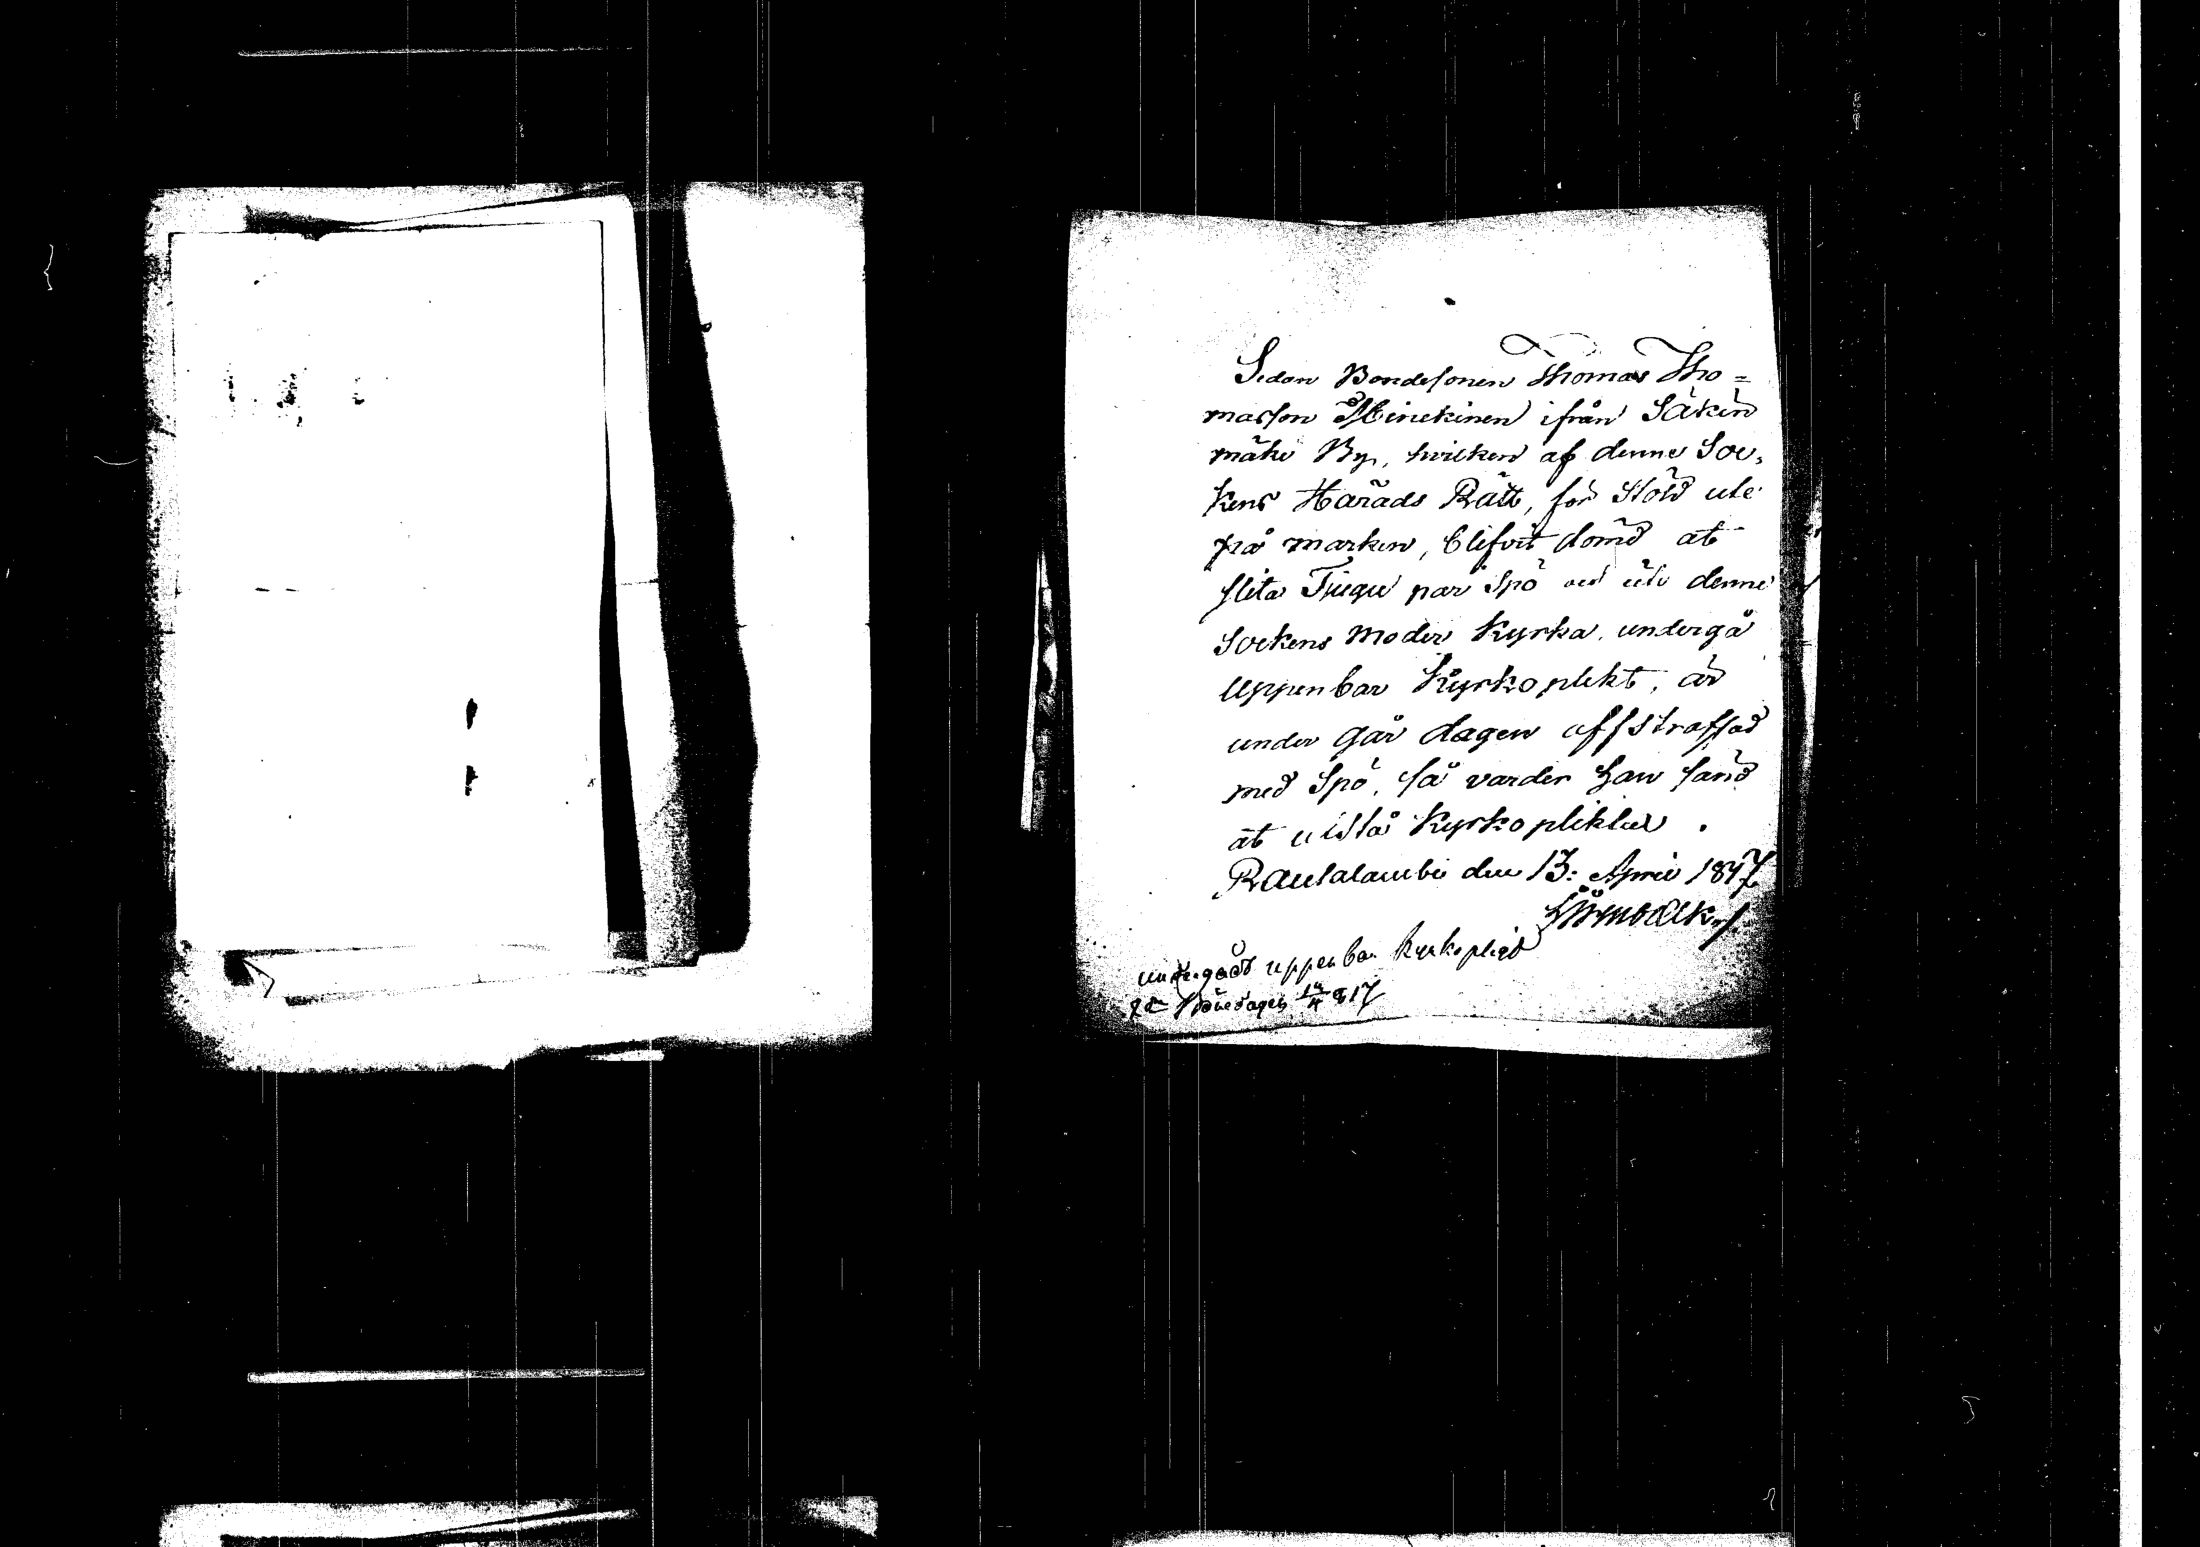 Sedan Bondesonen Thomas Tho=
masson Minckinen ifrån Säkin
mäki By, hvilken af denne Soc,
kens Härads Rätt, för Stöld ute
på marken, blifvit dömd at
slita Tjugu par Spö och uti denne
Sockens Moder Kyrka undergå
Uppenbar Kyrkoplikt, är
under går dagen affstraffad
med Spö, så varder han sänd
at utstå Kyrkoplikten.
Rautalambi den 13: April 1817
undergådt uppenbar Kyrkopligt
Bönedagen 817